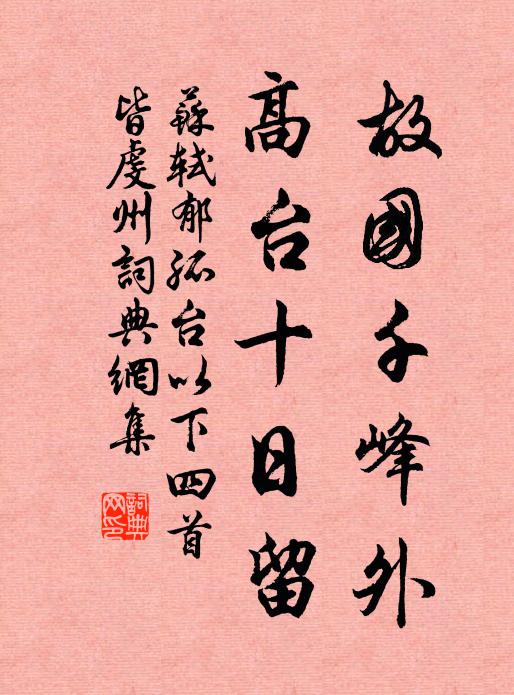 故國千峰外
高台十日留
蘇軾郁孤台以下四首
皆虔州詞典網集
詞典
网印